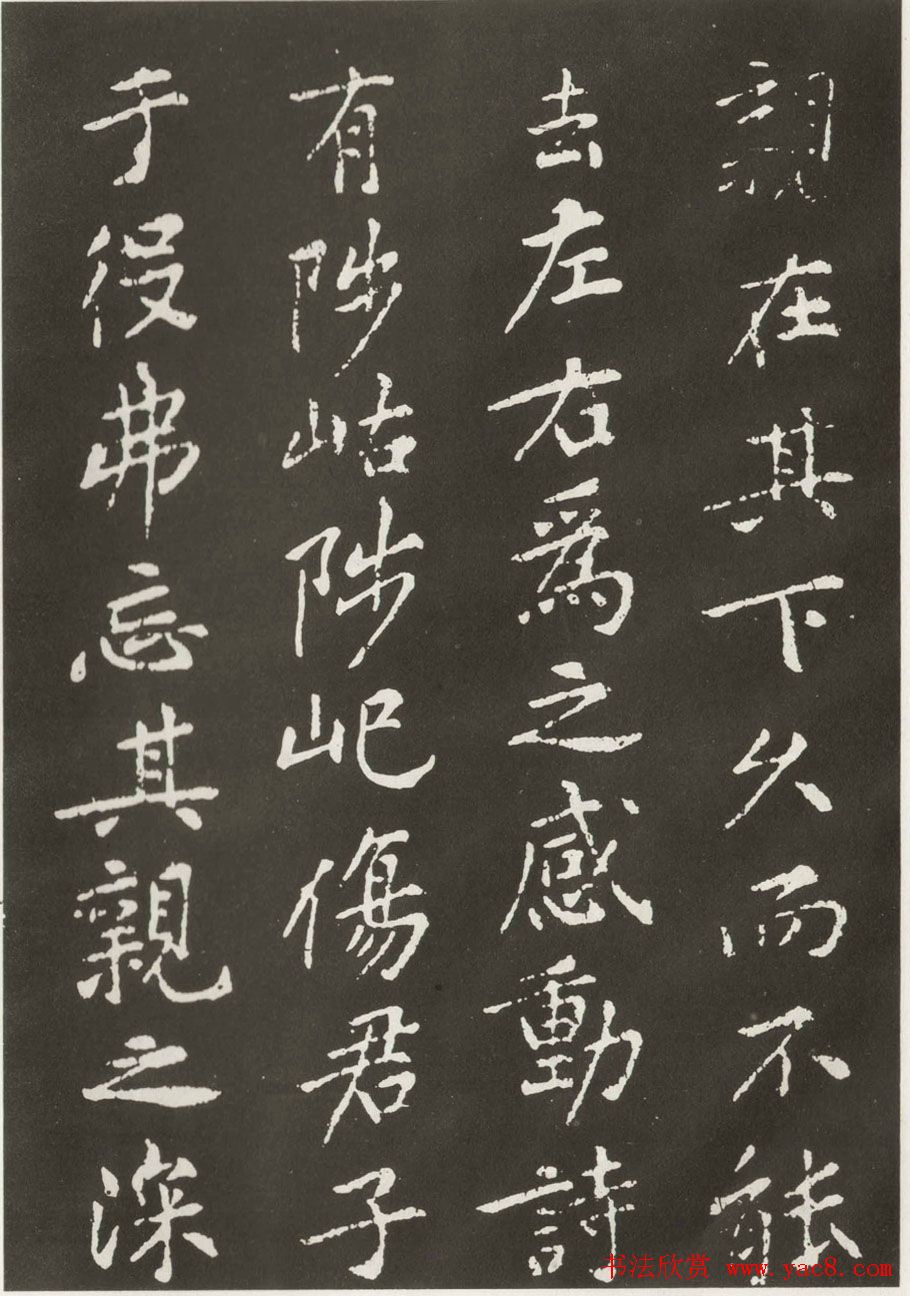 親在其下久而不能
去左右為之感動詩
有陟岵陟屺傷君子
于役弗忘其親之深
书法欣赏 www.yac8.com